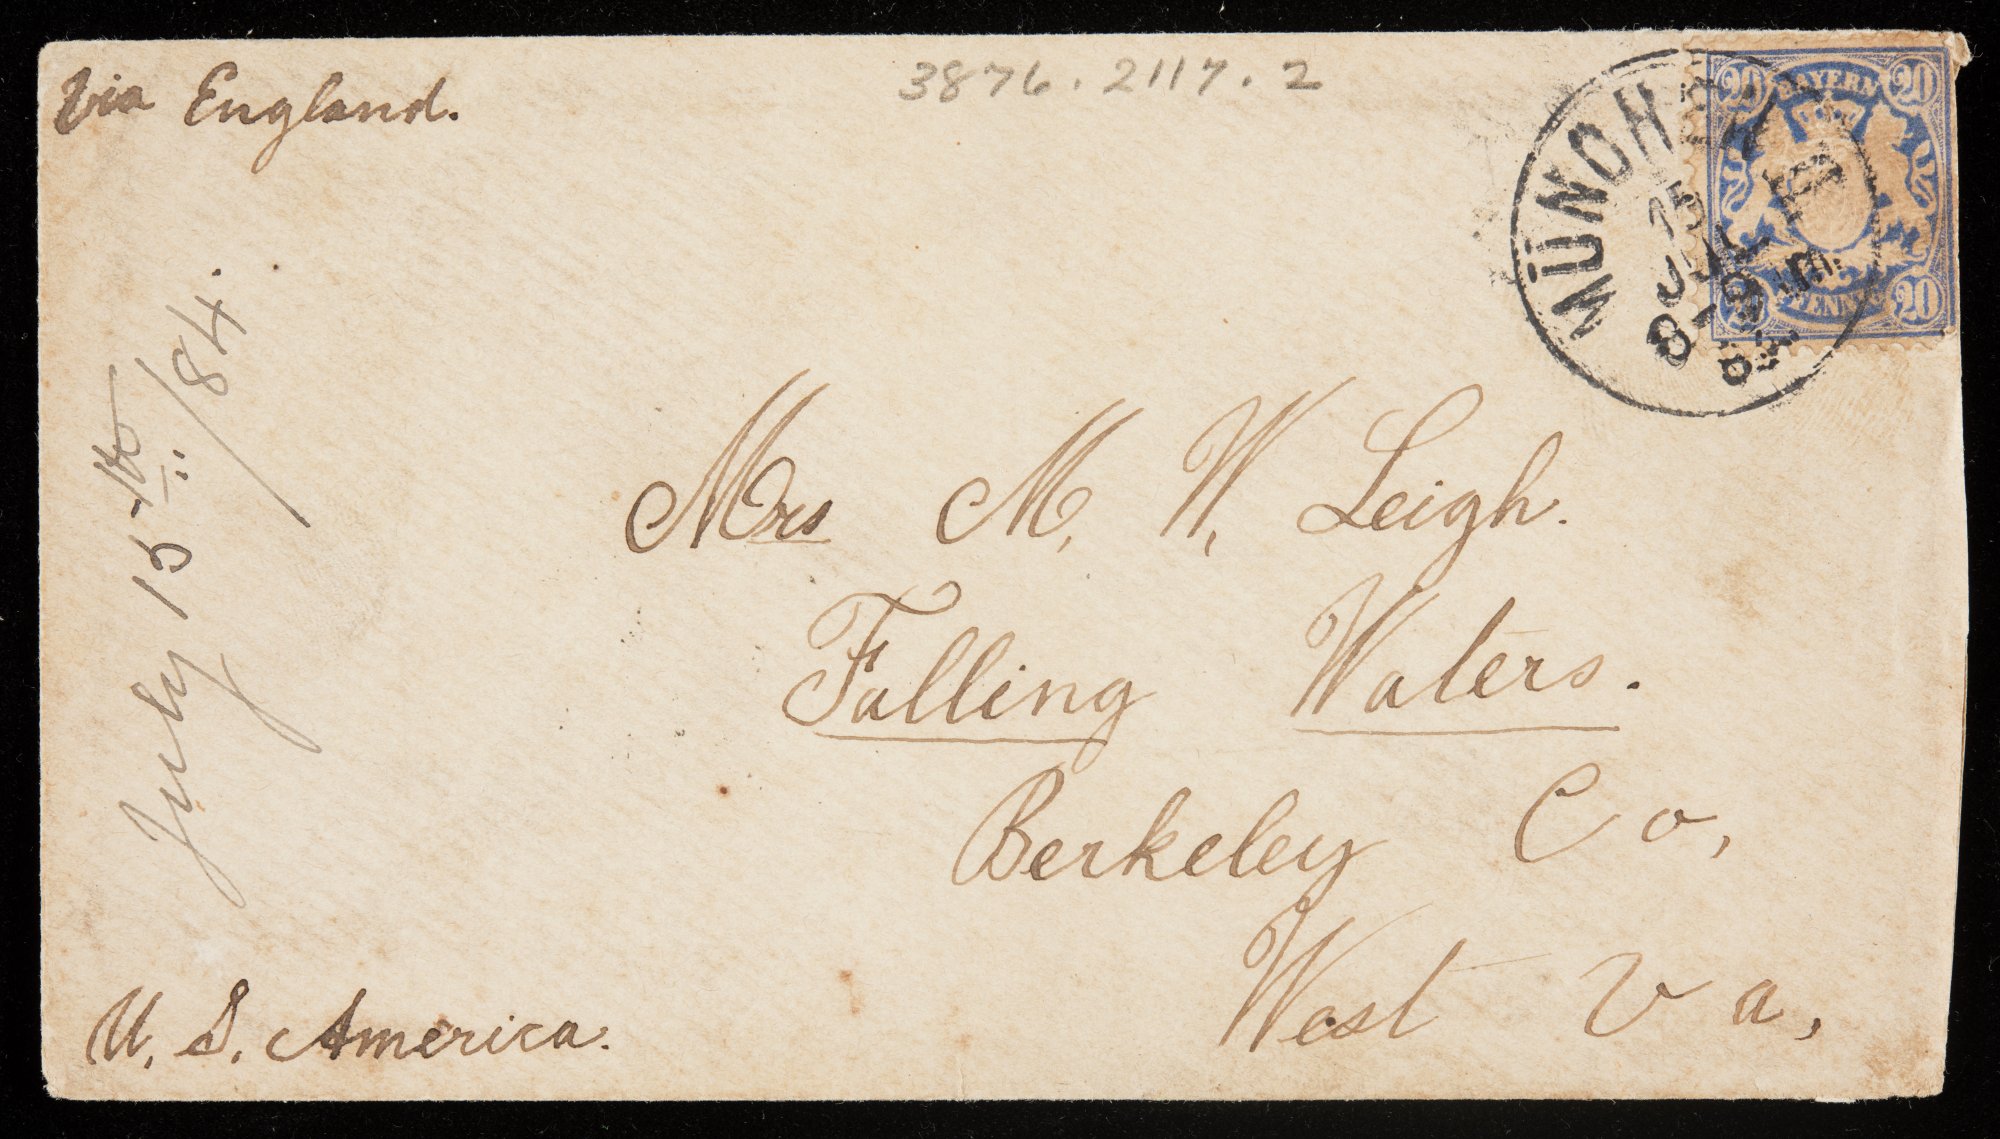 Via England.
3876.2117.2
20 BAYERN 20
PFENNIG 20
MÜNCHEN
15
JUL
8-9 Vm.
July 15th /84.
Mrs M. W. Leigh.
Falling Waters.
Berkeley Co,
West Va,
U. S. America.